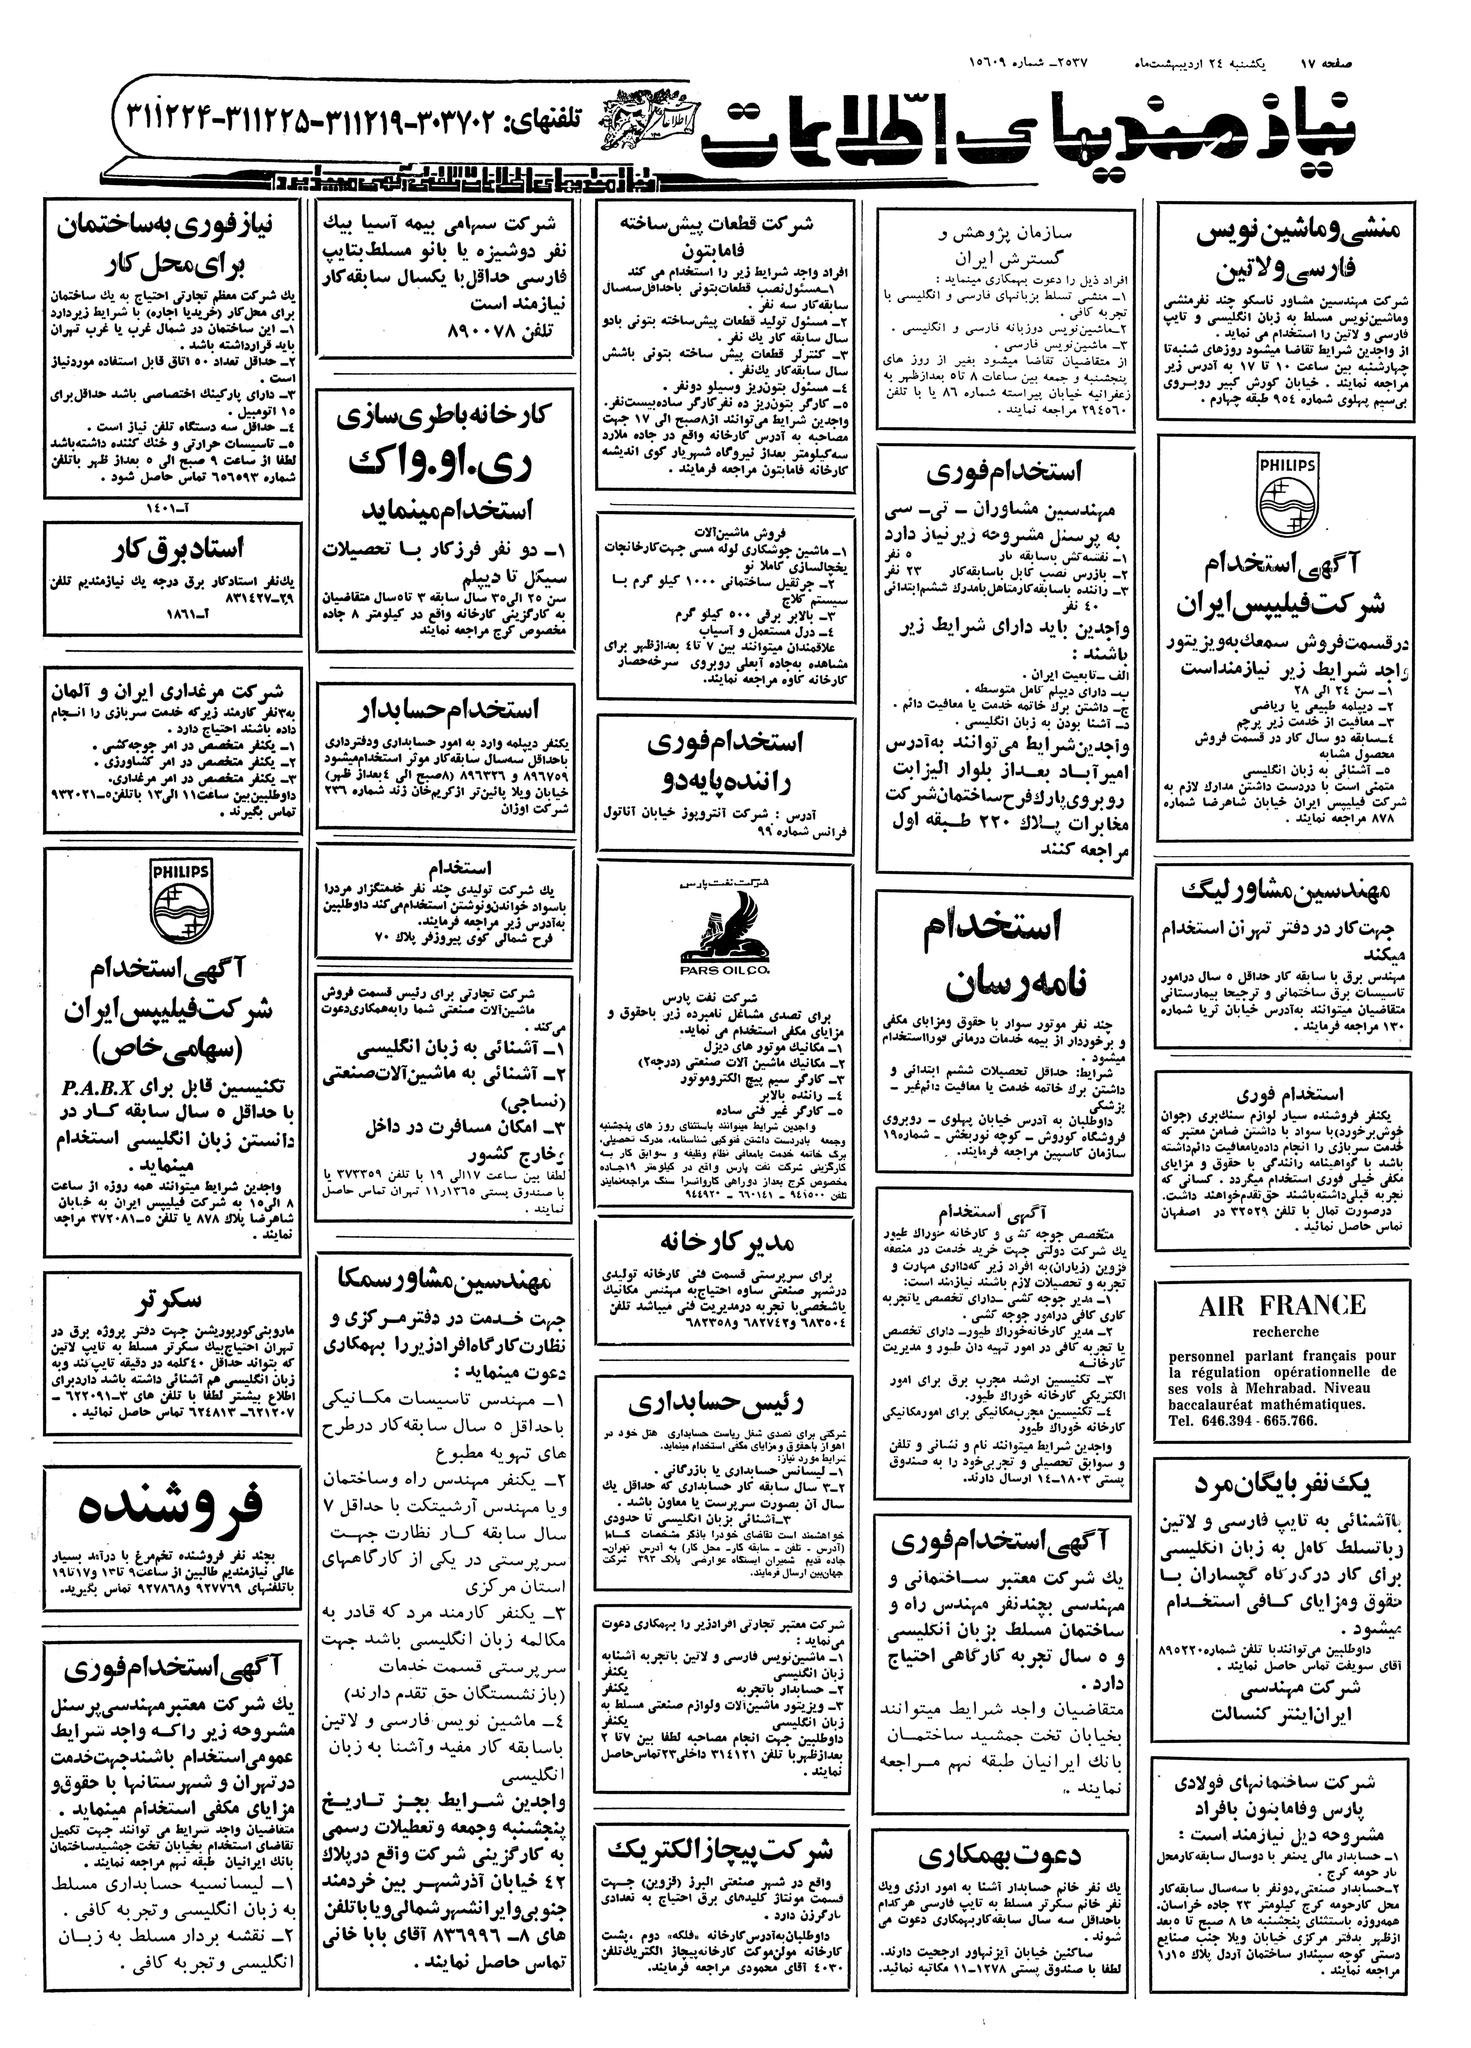 صفحه ۱۷ یکشنبه ۲٤ اردیبهشت‌ماه ۲۵۳۷ـ شماره ۱۵٦۰۹
نیازمندیهای اطلاعات
تلفنهای: ۳۰۳۷۰۲-۳۱۱۲۱۹-۳۱۱۲۲۵-۳۱۱۲۲۴
منشی و ماشین نویس
فارسی و لاتین
شرکت مهندسین مشاور ناسکو چند نفرمنشی
وماشین‌نویس مسلط به زبان انگلیسی و تایپ
فارسی و لاتین را استخدام می نماید .
از واجدین شرایط تقاضا میشود روزهای شنبه‌تا
چهارشنبه بین ساعت ۱۰ تا ۱۷ به آدرس زیر
مراجعه نمایند . خیابان کورش کبیر روبروی
بی‌سیم پهلوی شماره ۹۵٤ طبقه چهارم .
PHILIPS
آگهی استخدام
شرکت فیلیپس ایران
در قسمت فروش سمعک به ویزیتور
واجد شرایط زیر نیازمند است
۱ـ سن ۲٤ الی ۲۸
۲ـ دیپلمه طبیعی یا ریاضی
۳ـ معافیت از خدمت زیر پرچم
٤ـ سابقه دو سال کار در قسمت فروش
محصول مشابه
۵ـ آشنائی به زبان انگلیسی
متمنی است با دردست داشتن مدارک لازم به
شرکت فیلیپس ایران خیابان شاهرضا شماره
۸۷۸ مراجعه نمایند .
مهندسین مشاور لیگ
جهت کار در دفتر تهران استخدام
میکند
مهندس برق با سابقه کار حداقل ۵ سال درامور
تاسیسات برق ساختمانی و ترجیحا بیمارستانی
متقاضیان میتوانند به‌آدرس خیابان ثریا شماره
۱۳۰ مراجعه فرمایند .
استخدام فوری
یکنفر فروشنده سیار لوازم سنگبری (جوان
خوش‌برخورد) با سواد با داشتن ضامن معتبر که
خدمت سربازی را انجام داده یامعافیت دائم‌داشته
باشد با گواهینامه رانندگی با حقوق و مزایای
مکفی خیلی فوری استخدام میگردد . کسانی که
تجربه قبلی‌داشته‌باشند حق‌تقدم‌خواهند داشت.
درصورت تمایل با تلفن ۳۲۵۲۹ در اصفهان
تماس حاصل نمائید .
AIR FRANCE
recherche
personnel parlant français pour
la régulation opérationnelle de
ses vols à Mehrabad. Niveau
baccalauréat mathématiques.
Tel. 646.394 - 665.766.
یک نفر بایگان مرد
باآشنائی به تایپ فارسی و لاتین
وباتسلط کامل به زبان انگلیسی
برای کار در کارگاه گچساران با
حقوق ومزایای کافی استخدام
میشود .
داوطلبین می‌توانندبا تلفن شماره ۸۹۵۲۲۰
آقای سویفت تماس حاصل نمایند .
شرکت مهندسی
ایران اینتر کنسالت
شرکت ساختمانهای فولادی
پارس وفامابتون بافراد
مشروحه ذیل نیازمند است :
۱ـ حسابدار مالی یکنفر با دوسال سابقه‌کارمحل
کار حومه کرج .
۲ـ حسابدار صنعتی دونفر با سه‌سال سابقه‌کار
محل کارحومه کرج کیلومتر ۲۳ جاده خراسان.
همه‌روزه باستثنای پنجشنبه ها ۸ صبح تا ۵بعد
ازظهر بدفتر مرکزی خیابان ویلا جنب صنایع
دستی کوچه سپندار ساختمان آردل پلاک ۱۵ر۱
مراجعه نمایند .
سازمان پژوهش و
گسترش ایران
افراد ذیل را دعوت بهمکاری مینماید :
۱ـ منشی تسلط بزبانهای فارسی و انگلیسی با
تجربه کافی .
۲ـماشین‌نویس دوزبانه فارسی و انگلیسی .
۳ـ ماشین‌نویس فارسی .
از متقاضیان تقاضا میشود بغیر از روز های
پنجشنبه و جمعه بین ساعات ۸ تا۵ بعدازظهر به
زعفرانیه خیابان پیراسته شماره ۸٦ یا با تلفن
۲۹٤۵٦۰ مراجعه نمایند .
استخدام فوری
مهندسین مشاوران ـ تی‌ـ سی
به پرسنل مشروحه زیر نیاز دارد
۱ـ نقشه‌کش باسابقه کار ۵ نفر
۲ـ بازرس نصب کابل باسابقه‌کار ۲۳ نفر
۳ـ راننده باسابقه‌کارمتاهل بامدرک ششم ابتدائی
٤۰ نفر
واجدین باید دارای شرایط زیر
باشند :
الف ـ تابعیت ایران .
ب‌ـ دارای دیپلم کامل متوسطه .
ج‌ـ داشتن برگ خاتمه خدمت یا معافیت دائم .
د‌ـ آشنا بودن به زبان انگلیسی .
واجدین شرایط می توانند به آدرس
امیرآباد بعداز بلوار الیزابت
روبروی پارک فرح ساختمان شرکت
مخابرات پلاک ۲۲۰ طبقه اول
مراجعه کنند
استخدام
نامه رسان
چند نفر موتور سوار با حقوق ومزایای مکفی
و برخوردار از بیمه خدمات درمانی فورااستخدام
میشود .
شرایط: حداقل تحصیلات ششم ابتدائی و
داشتن برگ خاتمه خدمت یا معافیت دائم‌غیر ـ
پزشکی
داوطلبان به آدرس خیابان پهلوی ـ روبروی
فروشگاه کوروش ـ کوچه نوربخش ـ شماره۱۹
سازمان کاسپین مراجعه فرمایند.
آگهی استخدام
متخصص جوجه کشی و کارخانه خوراک طیور
یک شرکت دولتی جهت خرید خدمت در منطقه
قزوین (زیاران)به افراد زیر که‌دارای مهارت و
تجربه و تحصیلات لازم باشند نیازمند است:
۱ـ مدیر جوجه کشی ـدارای تخصص یاتجربه
کاری کافی درامور جوجه کشی .
۲ـ مدیر کارخانه‌خوراک طیور‌ـ دارای تخصص
یا تجربه کافی در امور تهیه دان طیور و مدیریت
کارخانه
۳ـ تکنیسین ارشد مجرب برق برای امور
الکتریکی کارخانه خوراک طیور.
٤ـ تکنیسین مجرب‌مکانیکی برای امورمکانیکی
کارخانه خوراک طیور
واجدین شرایط میتوانند نام و نشانی و تلفن
و سوابق تحصیلی و تجربی‌خود را به صندوق
پستی ۱۸۰۳ـ۱٤ ارسال دارند.
آگهی استخدام فوری
یک شرکت معتبر ساختمانی و
مهندسی بچند نفر مهندس راه و
ساختمان مسلط بزبان انگلیسی
و ۵ سال تجربه کارگاهی احتیاج
دارد .
متقاضیان واجد شرایط میتوانند
بخیابان تخت جمشید ساختمان
بانک ایرانیان طبقه نهم مراجعه
نمایند .
دعوت بهمکاری
یک نفر خانم حسابدار آشنا به امور ارزی ویک
نفر خانم سکرتر مسلط به تایپ فارسی هرکدام
باحداقل سه سال سابقه کاربهمکاری دعوت می
شوند .
ساکنین خیابان آیزنهاور ارجحیت دارند.
لطفا با صندوق پستی ۱۲۷۸ـ۱۱ مکاتبه نمائید.
شرکت قطعات پیش ساخته
فامابتون
افراد واجد شرایط زیر را استخدام می کند
۱ـمسئول‌نصب قطعات‌بتونی باحداقل‌سه‌سال
سابقه‌کار سه نفر .
۲ـ مسئول تولید قطعات پیش‌ساخته بتونی بادو
سال سابقه کار یک نفر .
۳ـ کنترلر قطعات پیش ساخته بتونی باشش
سال سابقه کار یک‌نفر.
٤ـ مسئول بتون‌ریز وسیلو دونفر .
۵ـ کارگر بتون‌ریز ده نفرکارگر ساده‌بیست‌نفر.
واجدین شرایط می‌توانند از۸صبح الی ۱۷ جهت
مصاحبه به آدرس کارخانه واقع در جاده ملارد
سه‌کیلومتر بعداز نیروگاه شهریار کوی اندیشه
کارخانه فامابتون مراجعه فرمایند .
فروش ماشین‌آلات
۱ـ ماشین جوشکاری لوله مسی جهت‌کارخانجات
یخچالسازی کاملا نو
۲ـ جرثقیل ساختمانی ۱۰۰۰ کیلو گرم با
سیستم کلاج
۳ـ بالابر برقی ۵۰۰ کیلو گرم
٤ـ درل مستعمل و آسیاب
علاقمندان میتوانند بین ۷ تا٤ بعدازظهر برای
مشاهده به‌جاده آبعلی روبروی سرخه‌حصار
کارخانه کاوه مراجعه نمایند.
استخدام فوری
راننده پایه دو
آدرس : شرکت آنتروپوز خیابان آناتول
فرانس شماره ۹۹
شرکت نفت پارس
PARS OIL CO.
شرکت نفت پارس
برای تصدی مشاغل نامبرده زیر باحقوق و
مزایای مکفی استخدام می نماید.
۱ـ مکانیک موتور های دیزل
۲ـ مکانیک ماشین آلات صنعتی (درجه۲)
۳ـ کارگر سیم پیچ الکتروموتور
٤ـ راننده بالابر
۵ـ کارگر غیر فنی ساده
واجدین شرایط میتوانند باستثنای روز های پنجشنبه
وجمعه بادردست داشتن فتوکپی شناسنامه، مدرک تحصیلی،
برگ خاتمه خدمت یامعافی نظام وظیفه و سوابق کار به
کارگزینی شرکت نفت پارس واقع در کیلومتر ۱۹جاده
مخصوص کرج بعداز دوراهی کاروانسرا سنگ مراجعه‌نمایند
تلفن ۹٤۱۵۰۰ ـ ٦٦۰۱٤۱ ـ ۹٤٤۹۲۰
مدیر کارخانه
برای سرپرستی قسمت فنی کارخانه تولیدی
درشهر صنعتی ساوه احتیاج‌به مهندس مکانیک
یاشخصی‌با تجربه درمدیریت فنی میباشد تلفن
٦۸۳۵۰٤ و٦۸۲۷٤۲ و٦۸۲۳۵۸
رئیس حسابداری
شرکتی برای تصدی شغل ریاست حسابداری هتل خود در
اهواز باحقوق و مزایای مکفی استخدام مینماید.
شرایط مورد نیاز:
۱ـ لیسانس حسابداری یا بازرگانی .
۲ـ۳ سال سابقه کار حسابداری که حداقل یک
سال آن بصورت سرپرست یا معاون باشد .
۳ـآشنائی بزبان انگلیسی تا حدودی
خواهشمند است تقاضای خودرا باذکر مشخصات کامل
(آدرس ـ تلفن ـ سابقه کار‌ـ محل کار) به آدرس تهران‌ـ
جاده قدیم شمیران ایستگاه عوارضی پلاک ۳۹۳ شرکت
جهان‌بین ارسال فرمایند.
شرکت معتبر تجارتی افرادزیر را بهمکاری دعوت
می‌نماید :
۱ـ ماشین‌نویس فارسی و لاتین باتجربه آشنابه
زبان انگلیسی یکنفر
۲ـ حسابدار باتجربه یکنفر
۳ـ ویزیتور ماشین‌آلات ولوازم صنعتی مسلط به
زبان انگلیسی یکنفر
داوطلبین جهت انجام مصاحبه لطفا بین ۷تا ۲
بعدازظهربا تلفن ۳۱٤۱۲۱ داخلی۲۳تماس‌حاصل
نمایند .
شرکت پیچاز الکتریک
واقع در شهر صنعتی البرز (قزوین) جهت
قسمت مونتاژ کلیدهای برق احتیاج به تعدادی
کارگرزن دارد .
داوطلبان‌به‌آدرس‌کارخانه «فلکه» دوم ،پشت
کارخانه مولن‌موکت کارخانه‌پیچاز الکتریک‌تلفن
٤۰۳۰ آقای محمودی مراجعه فرمایند.
شرکت سهامی بیمه آسیا بیک
نفر دوشیزه یا بانو مسلط بتایپ
فارسی حداقل با یکسال سابقه کار
نیازمند است
تلفن ۸۹۰۰۷۸
کارخانه باطری سازی
ری.او.واک
استخدام مینماید
۱ـ دو نفر فرزکار با تحصیلات
سیکل تا دیپلم
سن ۲۵ الی۳۵ سال سابقه ۳ تا۵سال متقاضیان
به کارگزینی کارخانه واقع در کیلومتر ۸ جاده
مخصوص کرج مراجعه نمایند
استخدام حسابدار
یکنفر دیپلمه وارد به امور حسابداری ودفترداری
باحداقل سه‌سال سابقه‌کار موثر استخدام‌میشود
۸۹٦۷۵۹ و ۸۹٦۳۲٦ (۸صبح الی ٤بعداز ظهر)
خیابان ویلا پائین‌تر ازکریم‌خان زند شماره ۲۳٦
شرکت اوزان
استخدام
یک شرکت تولیدی چند نفر خدمتگزار مردرا
باسواد خواندن‌ونوشتن استخدام‌می‌کند داوطلبین
به‌آدرس زیر مراجعه فرمایند.
فرح شمالی کوی پیروزفر پلاک ۷۰
شرکت تجارتی برای رئیس قسمت فروش
ماشین‌آلات صنعتی شما رابه‌همکاری‌دعوت
می‌کند .
۱ـ آشنائی به زبان انگلیسی
۲ـ آشنائی به ماشین آلات صنعتی
(نساجی)
۳ـ امکان مسافرت در داخل
و خارج کشور
لطفا بین ساعت ۱۷الی ۱۹ با تلفن ۳۷۳۳۵۹ یا
با صندوق پستی ۱۳٦۵ر۱۱ تهران تماس حاصل
نمایند .
مهندسین مشاور سمکا
جهت خدمت در دفتر مرکزی و
نظارت کارگاه افراد زیر را بهمکاری
دعوت مینماید :
۱ـ مهندس تاسیسات مکانیکی
باحداقل ۵ سال سابقه کار در طرح
های تهویه مطبوع
۲ـ یکنفر مهندس راه وساختمان
ویا مهندس آرشیتکت با حداقل ۷
سال سابقه کار نظارت جهت
سرپرستی در یکی از کارگاههای
استان مرکزی
۳ـ یکنفر کارمند مرد که قادر به
مکالمه زبان انگلیسی باشد جهت
سرپرستی قسمت خدمات
(بازنشستگان حق تقدم دارند)
٤ـ ماشین نویس فارسی و لاتین
باسابقه کار مفید وآشنا به زبان
انگلیسی
واجدین شرایط بجز تاریخ
پنجشنبه وجمعه وتعطیلات رسمی
به کارگزینی شرکت واقع در پلاک
٤۲ خیابان آذرشهر بین خردمند
جنوبی و ایرانشهر شمالی و یا با تلفن
های ۸ـ ۸۳٦۹۹٦ آقای بابا خانی
تماس حاصل نمایند .
نیاز فوری به ساختمان
برای محل کار
یک شرکت معظم تجارتی احتیاج به یک ساختمان
برای محل‌کار (خریدیا اجاره) با شرایط زیردارد
۱ـ این ساختمان در شمال غرب یا غرب تهران
باید قرارداشته باشد .
۲ـ حداقل تعداد ۵۰ اتاق قابل استفاده موردنیاز
است .
۳ـ دارای پارکینگ اختصاصی باشد حداقل‌برای
۱۵ اتومبیل .
٤ـ حداقل سه دستگاه تلفن نیاز است .
۵ـ تاسیسات حرارتی و خنک کننده داشته‌باشد
لطفا از ساعت ۹ صبح الی ۵ بعداز ظهر باتلفن
شماره ٦۵٦۵۹۳ تماس حاصل شود .
آـ۱٤۰۱
استاد برق کار
یک‌نفر استادکار برق درجه یک نیازمندیم تلفن
۲۹ـ۸۳۱٤۲۷
آـ۱۸٦۱
شرکت مرغداری ایران و آلمان
به۳نفر کارمند زیرکه خدمت سربازی را انجام
داده باشند احتیاج دارد .
۱ـ یکنفر متخصص در امر جوجه‌کشی .
۲ـ یکنفر متخصص در امر کشاورزی .
۳ـ یکنفر متخصص در امر مرغداری.
داوطلبین‌بین ساعت۱۱ الی۱۳ با تلفن۵ـ۹۳۲۰۲۱
تماس بگیرند .
PHILIPS
آگهی استخدام
شرکت فیلیپس ایران
(سهامی خاص)
تکنیسین قابل برای P.A.B.X
با حداقل ۵ سال سابقه کار در
دانستن زبان انگلیسی استخدام
مینماید .
واجدین شرایط میتوانند همه روزه از ساعت
۸ الی۱۵ به شرکت فیلیپس ایران به خیابان
شاهرضا پلاک ۸۷۸ یا تلفن ۵ـ۳۷۲۰۸۱ مراجعه
نمایند .
سکرتر
ماروبنی‌کورپوریشن جهت دفتر پروژه برق در
تهران احتیاج‌بیک سکرتر مسلط به تایپ لاتین
که بتواند حداقل ٤۰کلمه در دقیقه تایپ‌کند وبه
زبان انگلیسی هم آشنائی داشته باشد داردبرای
اطلاع بیشتر لطفا با تلفن های ۳ـ٦۲۲۰۹۱ ـ
٦۲۱۲۰۷ـ ٦۲٤۸۱۳ تماس حاصل نمائید .
فروشنده
بچند نفر فروشنده تخم‌مرغ با درآمد بسیار
عالی نیازمندیم طالبین از ساعت۹ تا۱۳ و۱۷تا۱۹
باتلفنهای ۹۲۷۷٦۹ و۹۲۷۸٦۸ تماس بگیرید.
آگهی استخدام فوری
یک شرکت معتبر مهندسی پرسنل
مشروحه زیر را که واجد شرایط
عمومی استخدام باشند جهت خدمت
در تهران و شهرستانها با حقوق و
مزایای مکفی استخدام مینماید .
متقاضیان واجد شرایط می توانند جهت تکمیل
تقاضای استخدام بخیابان تخت جمشیدساختمان
بانک ایرانیان طبقه نهم مراجعه نمایند .
۱ـ لیسانسیه حسابداری مسلط
به زبان انگلیسی وتجربه کافی .
۲ـ نقشه بردار مسلط به زبان
انگلیسی وتجربه کافی .